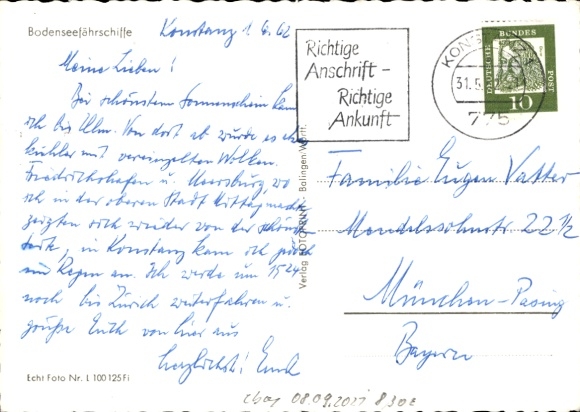 Bodenseefährschiffe
Konstanz 1.6.62
Meine Lieben!
Bei schönstem Sonnenschein kam
ich bis Ulm. Von dort ab wurde es etwas
kühler mit vereinzelten Wolken.
Friedrichshafen u. Meersburg, wo
ich in der oberen Stadt Mittag machte
zeigten sich wieder von der schönsten
Seite, in Konstanz kam ich jedoch
mit Regen an. Ich werde um 15 24
noch bis Zürich weiterfahren u.
grüße Euch von hier aus
herzlichst!
Echt Foto Nr. L 100125 Fi
Richtige
Anschrift –
Richtige
Ankunft
KONSTANZ
31.5.
775
DEUTSCHE BUNDESPOST
10
Verlag Balingen/Württ.
Familie Eugen Vatter
Mendelssohnstr 22 1/2
München-Pasing
Bayern
08.09.2021